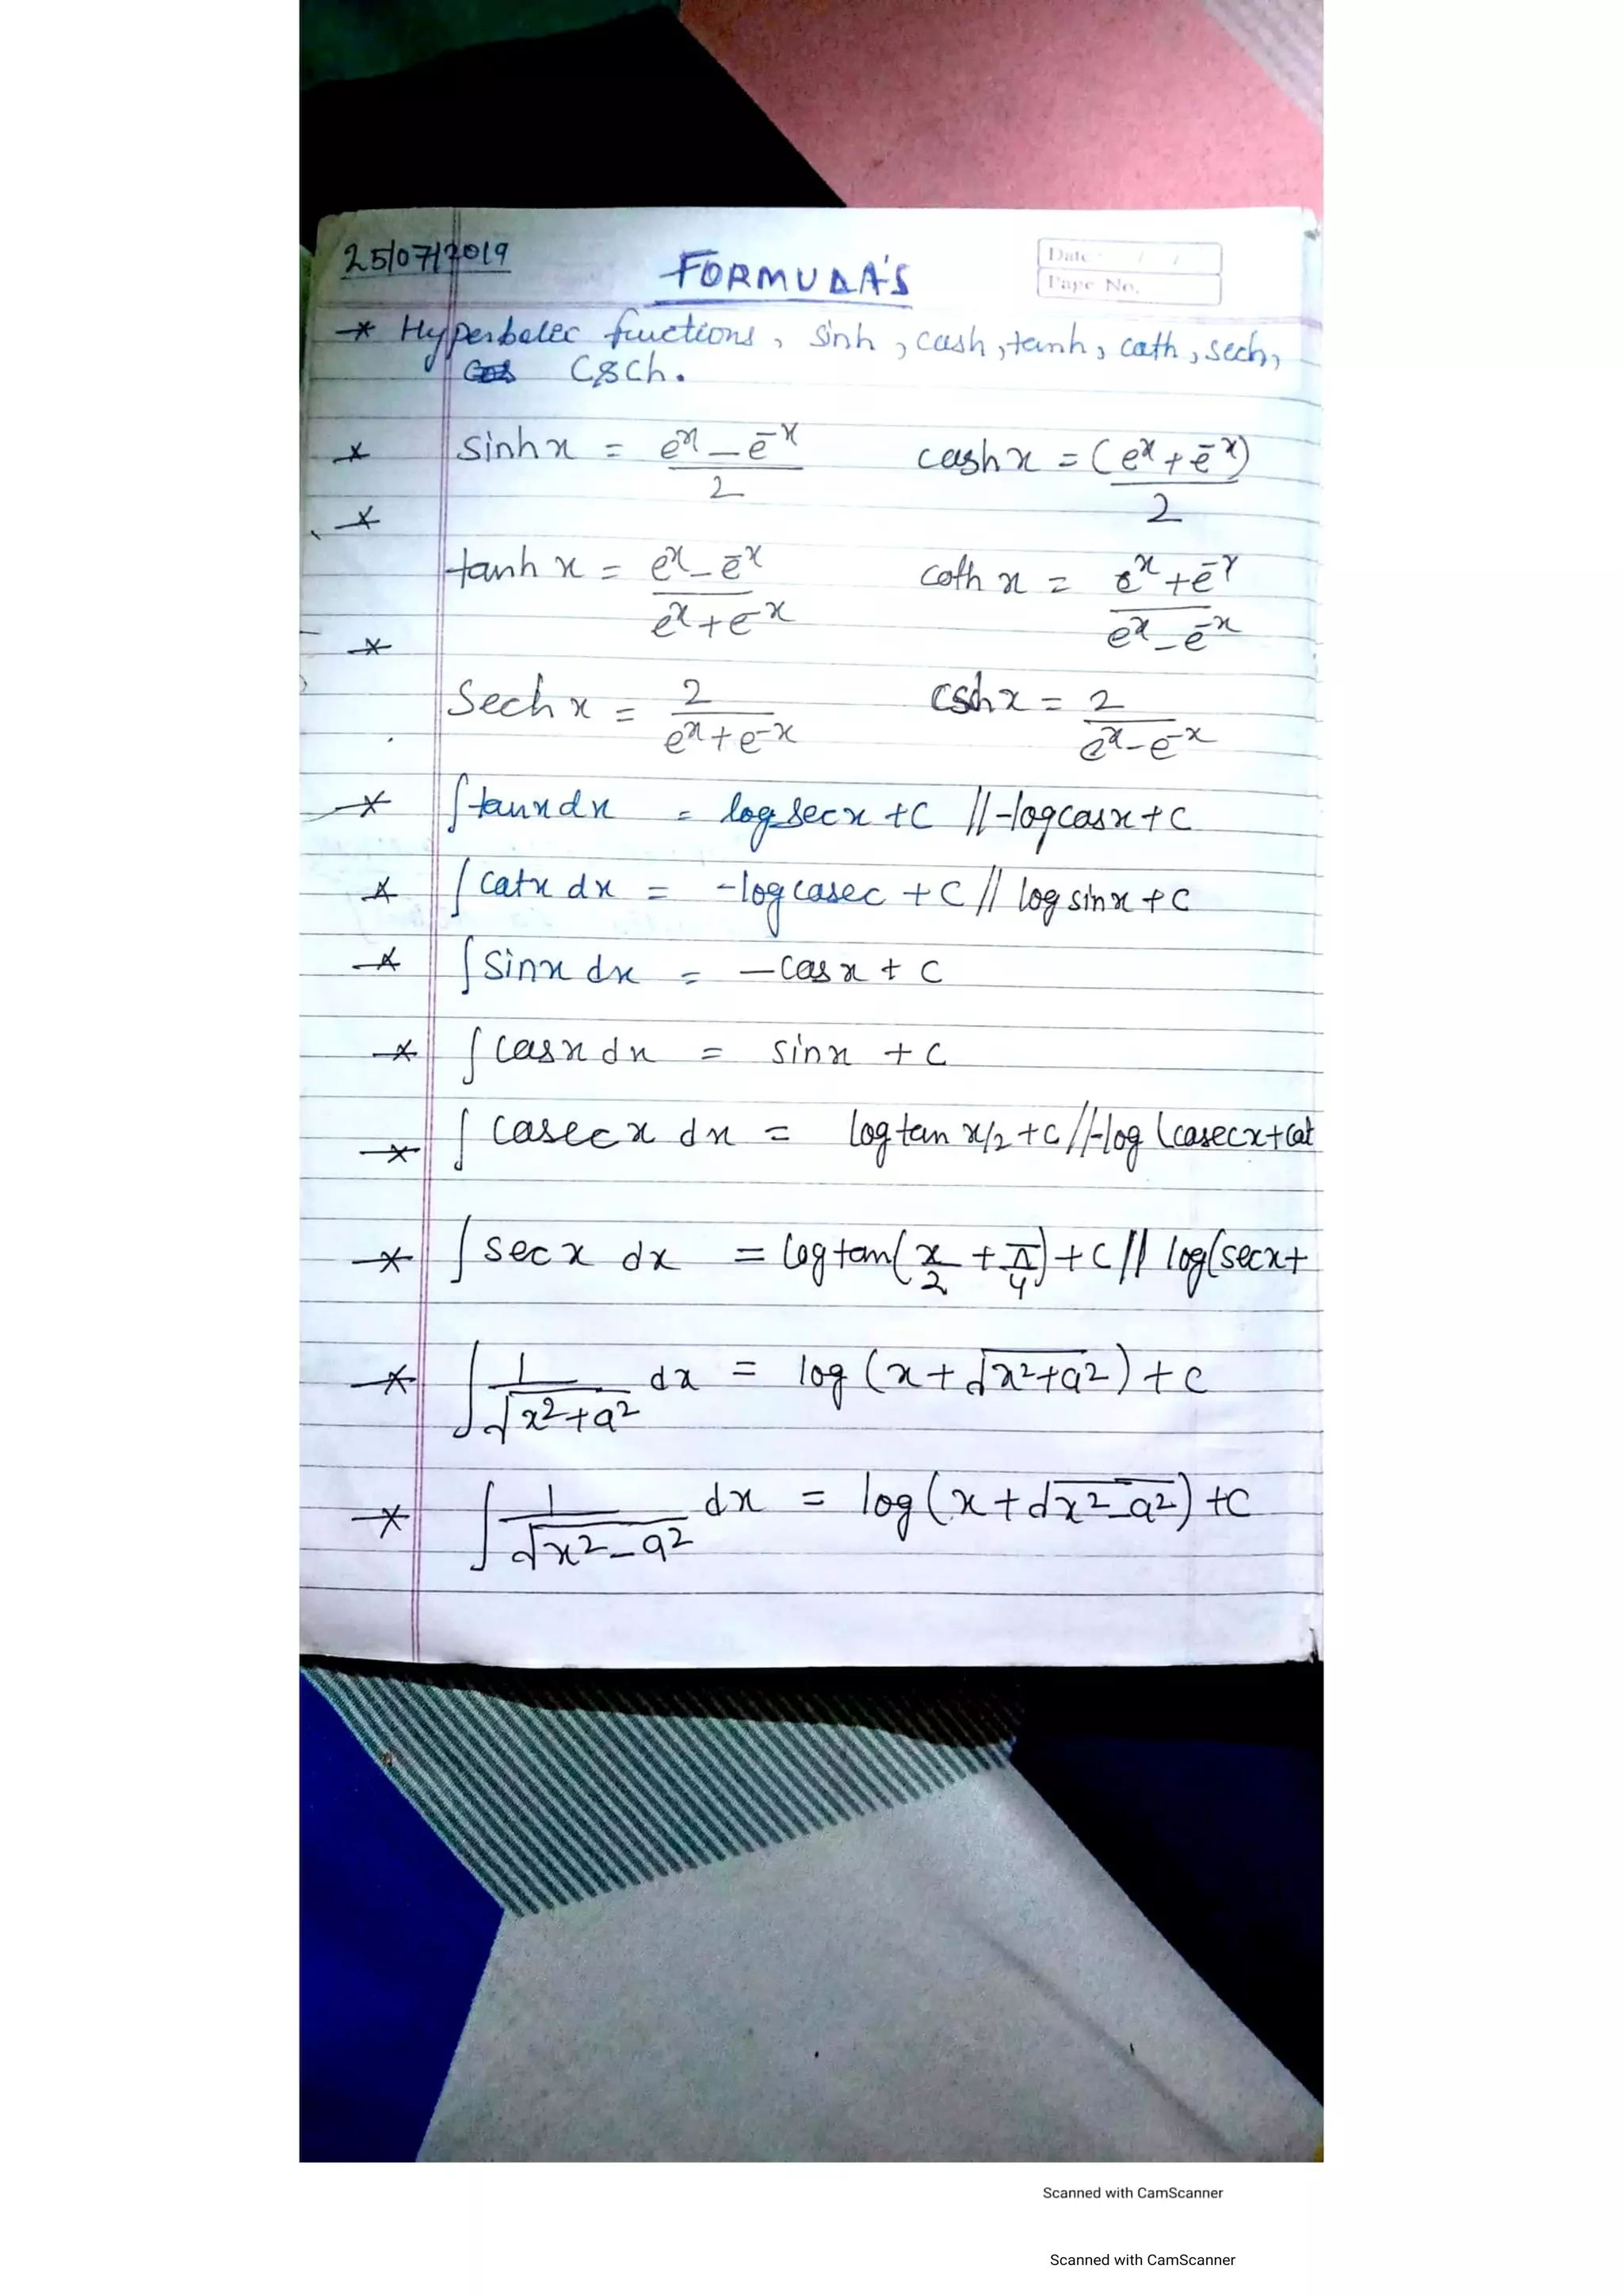 25/07/2019
FORMULA'S
Date : / /
Page No.
* Hyperbolic functions, sinh, cosh, tanh, coth, sech,
csch.
* sinh x = (e^x - e^-x)/2 cosh x = (e^x + e^-x)/2
* tanh x = (e^x - e^-x)/(e^x + e^-x) coth x = (e^x + e^-x)/(e^x - e^-x)
* Sech x = 2/(e^x + e^-x) csch x = 2/(e^x - e^-x)
* ∫tanx dx = log secx + C // -log cosx + C
* ∫cotx dx = -log cosec + C // log sinx + C
* ∫sinx dx = -cos x + C
* ∫cosx dx = sinx + C
* ∫cosec x dx = log tan x/2 + C // -log (cosecx + cot
* ∫sec x dx = log tan(x/2 + π/4) + C // log(secx +
* ∫ 1/√(x²+a²) dx = log (x + √(x²+a²)) + C
* ∫ 1/√(x²-a²) dx = log (x + √(x²-a²)) + C
Scanned with CamScanner
Scanned with CamScanner